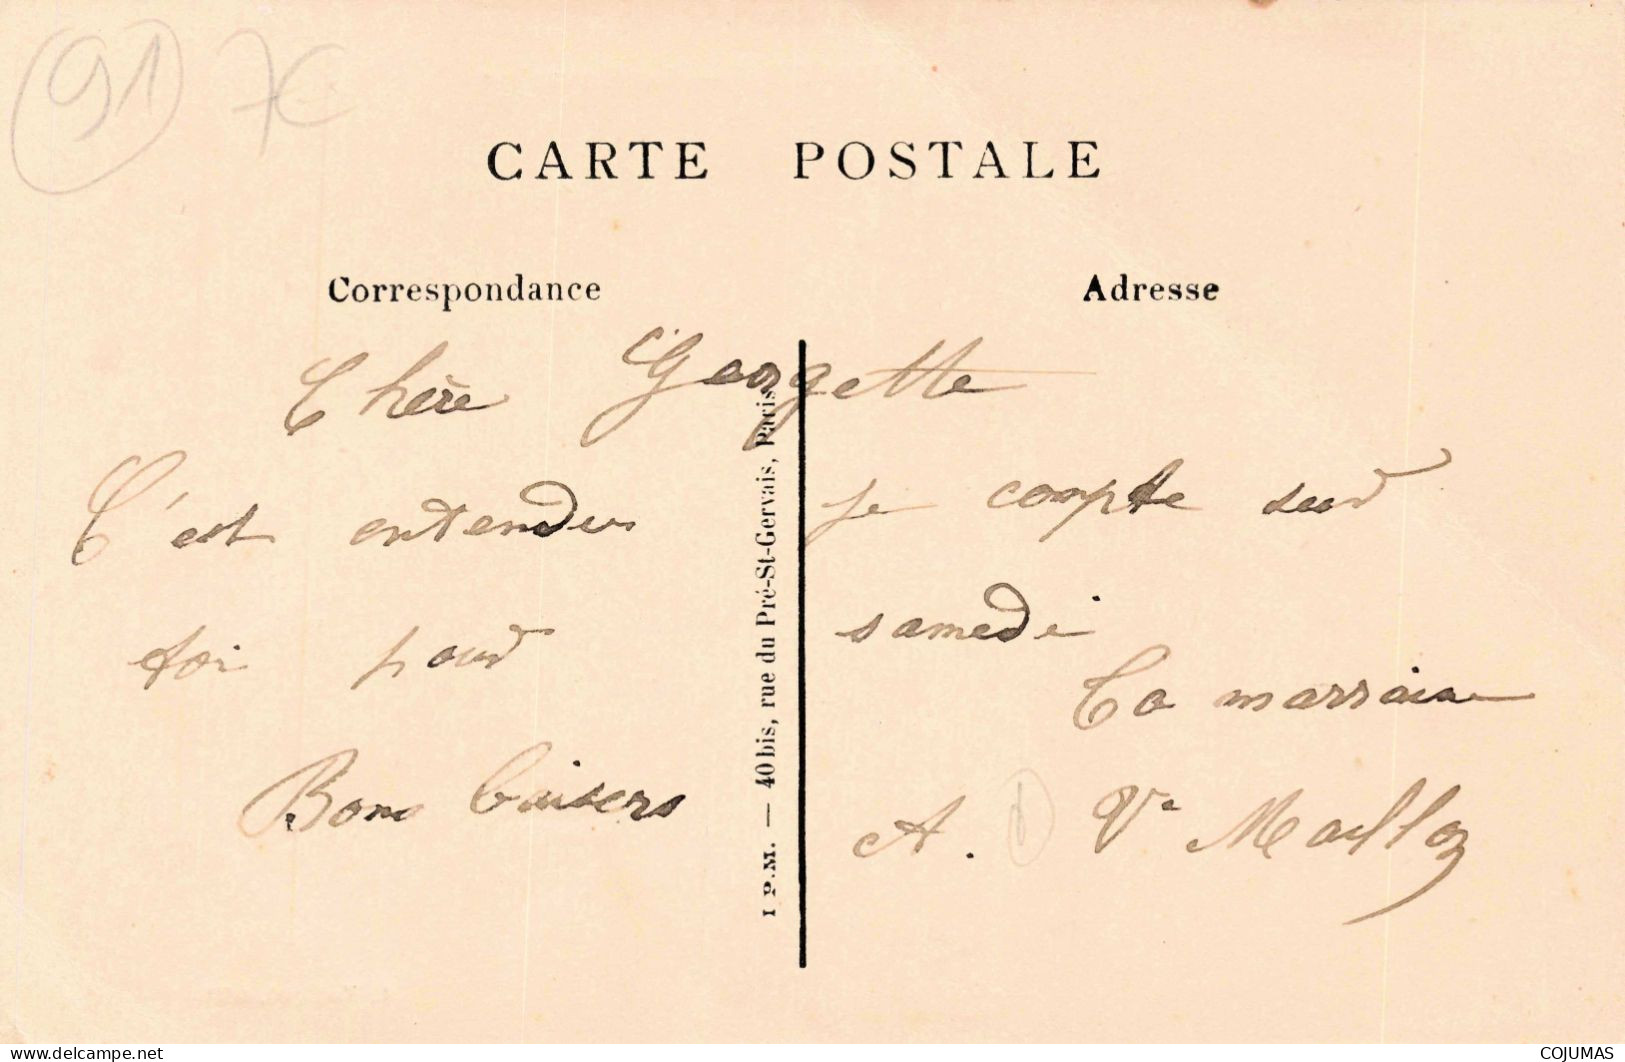 91 7€
CARTE POSTALE
Correspondance Adresse
Chère Georgette
C'est entendu je compte sur
toi pour samedi
Ta marraine
Bons baisers
A. Ve Mailloz
I P.M. — 40bis, rue du Pré-St-Gervais, Paris
www.delcampe.net COJUMAS